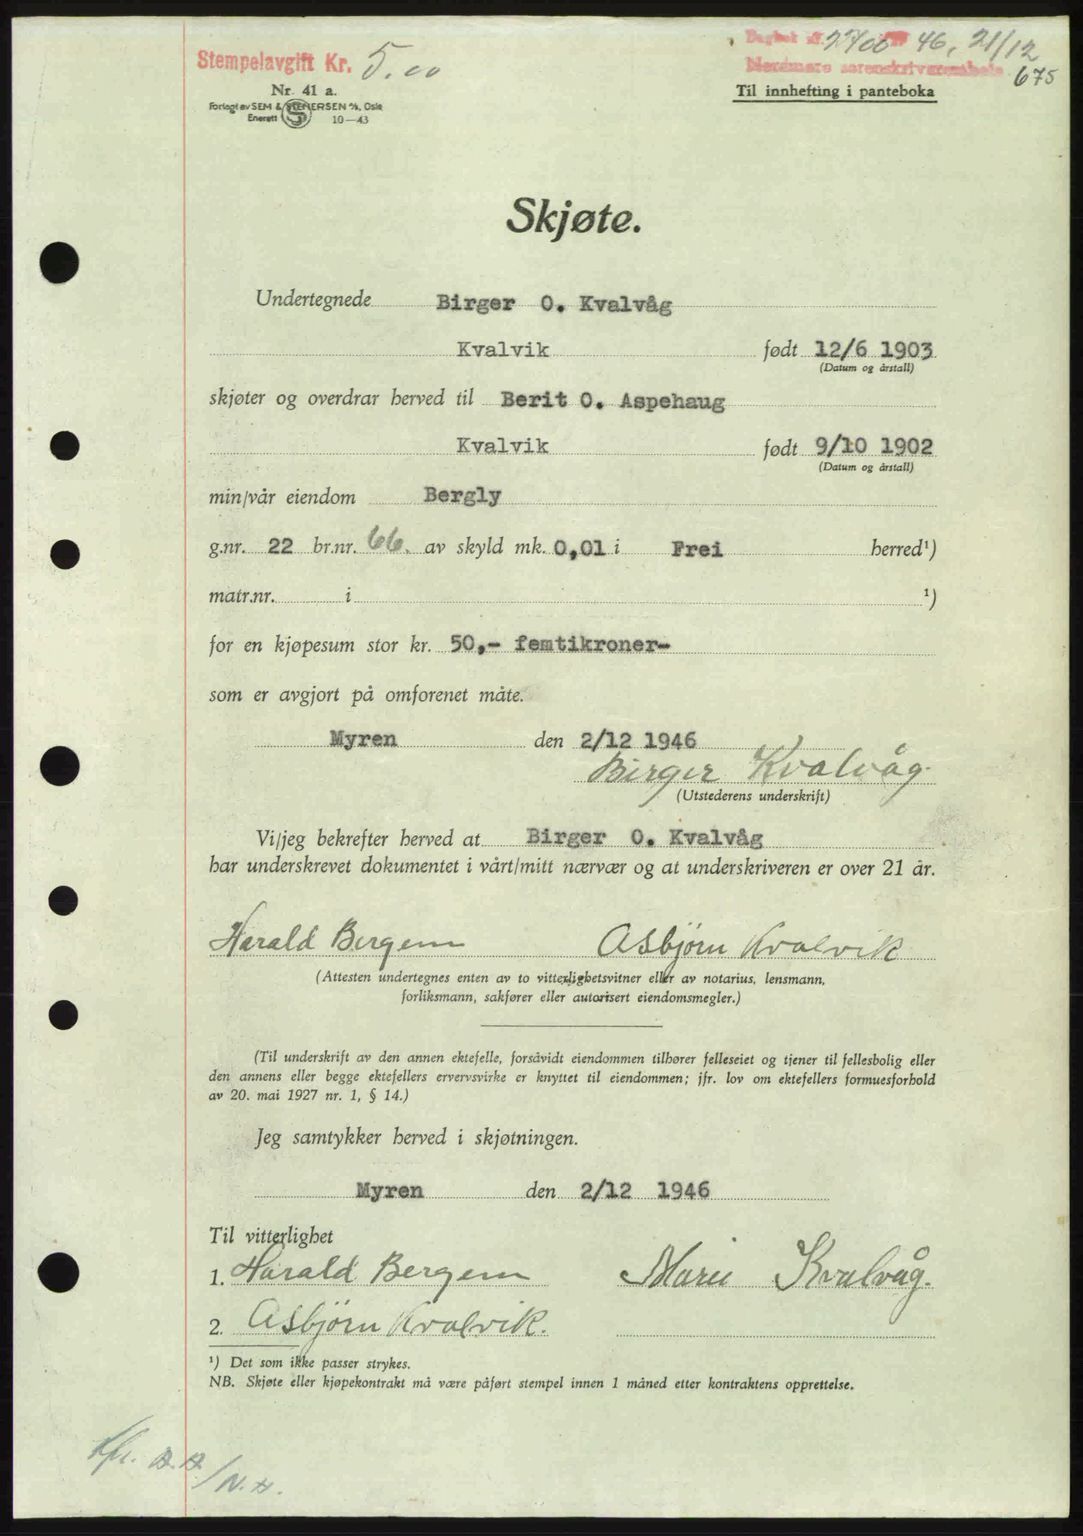 Stempelavgift Kr. 5.00
Dagbok nr. 2700 46, 21/12
Nordmøre sorenskriverembete 675
Nr. 41 a.
Forlagt av SEM & STENERSEN A/S, Oslo
Enerett 10—43
Til innhefting i panteboka
Skjøte.
Undertegnede Birger O. Kvalvåg
Kvalvik født 12/6 1903
(Datum og årstall)
skjøter og overdrar herved til Berit O. Aspehaug
Kvalvik født 9/10 1902
(Datum og årstall)
min/vår eiendom Bergly
g.nr. 22 br.nr. 66. av skyld mk. 0,01 i Frei herred¹)
matr.nr. i ¹)
for en kjøpesum stor kr. 50,- femtikroner-
som er avgjort på omforenet måte.
Myren den 2/12 1946
Birger Kvalvåg.
(Utstederens underskrift)
Vi/jeg bekrefter herved at Birger O. Kvalvåg
har underskrevet dokumentet i vårt/mitt nærvær og at underskriveren er over 21 år.
Harald Bergem Asbjørn Kvalvik
(Attesten undertegnes enten av to vitterlighetsvitner eller av notarius, lensmann,
forliksmann, sakfører eller autorisert eiendomsmegler.)
(Til underskrift av den annen ektefelle, forsåvidt eiendommen tilhører felleseiet og tjener til fellesbolig eller
den annens eller begge ektefellers ervervsvirke er knyttet til eiendommen; jfr. lov om ektefellers formuesforhold
av 20. mai 1927 nr. 1, § 14.)
Jeg samtykker herved i skjøtningen.
Myren den 2/12 1946
Til vitterlighet
1. Harald Bergem Marie Kvalvåg.
2. Asbjørn Kvalvik.
¹) Det som ikke passer strykes.
NB. Skjøte eller kjøpekontrakt må være påført stempel innen 1 måned etter kontraktens opprettelse.